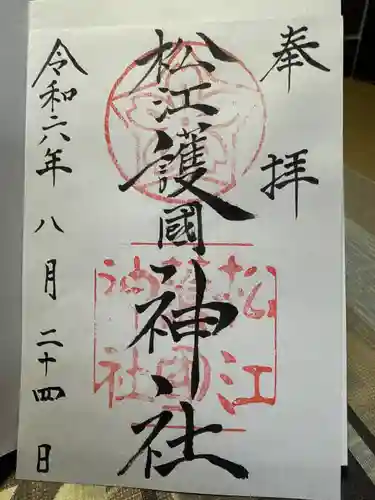 奉拝
松江護國神社
令和六年八月二十四日
松江
護國
神社